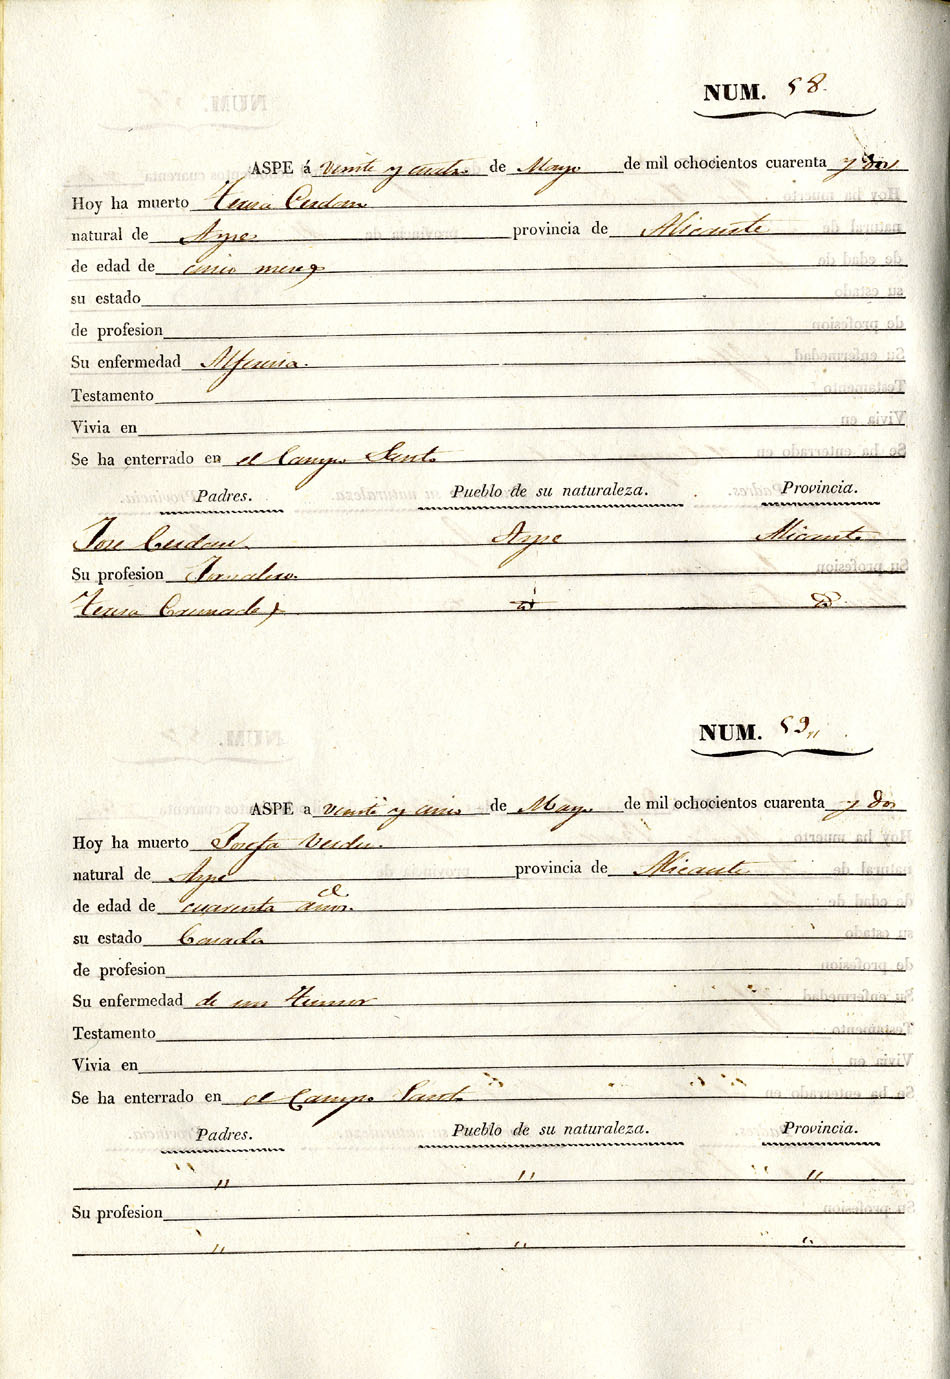 NUM. 58.
ASPE á veinte y cuatro de Mayo de mil ochocientos cuarenta y dos
Hoy ha muerto Teresa Cerdan
natural de Aspe provincia de Alicante
de edad de cinco meses
su estado
de profesion
Su enfermedad Alferecia.
Testamento
Vivia en
Se ha enterrado en el Campo Santo
Padres. Pueblo de su naturaleza. Provincia.
Jose Cerdan. Aspe Alicante
Su profesion Jornalero.
Teresa
NUM. 59 "
ASPE a veinte y cinco de Mayo de mil ochocientos cuarenta y dos
Hoy ha muerto Josefa Verdu.
natural de Aspe provincia de Alicante
de edad de cuarenta años.
su estado Casada
de profesion
Su enfermedad de un tumor
Testamento
Vivia en
Se ha enterrado en el Campo Santo
Padres. Pueblo de su naturaleza. Provincia.
" " "
Su profesion
" " "